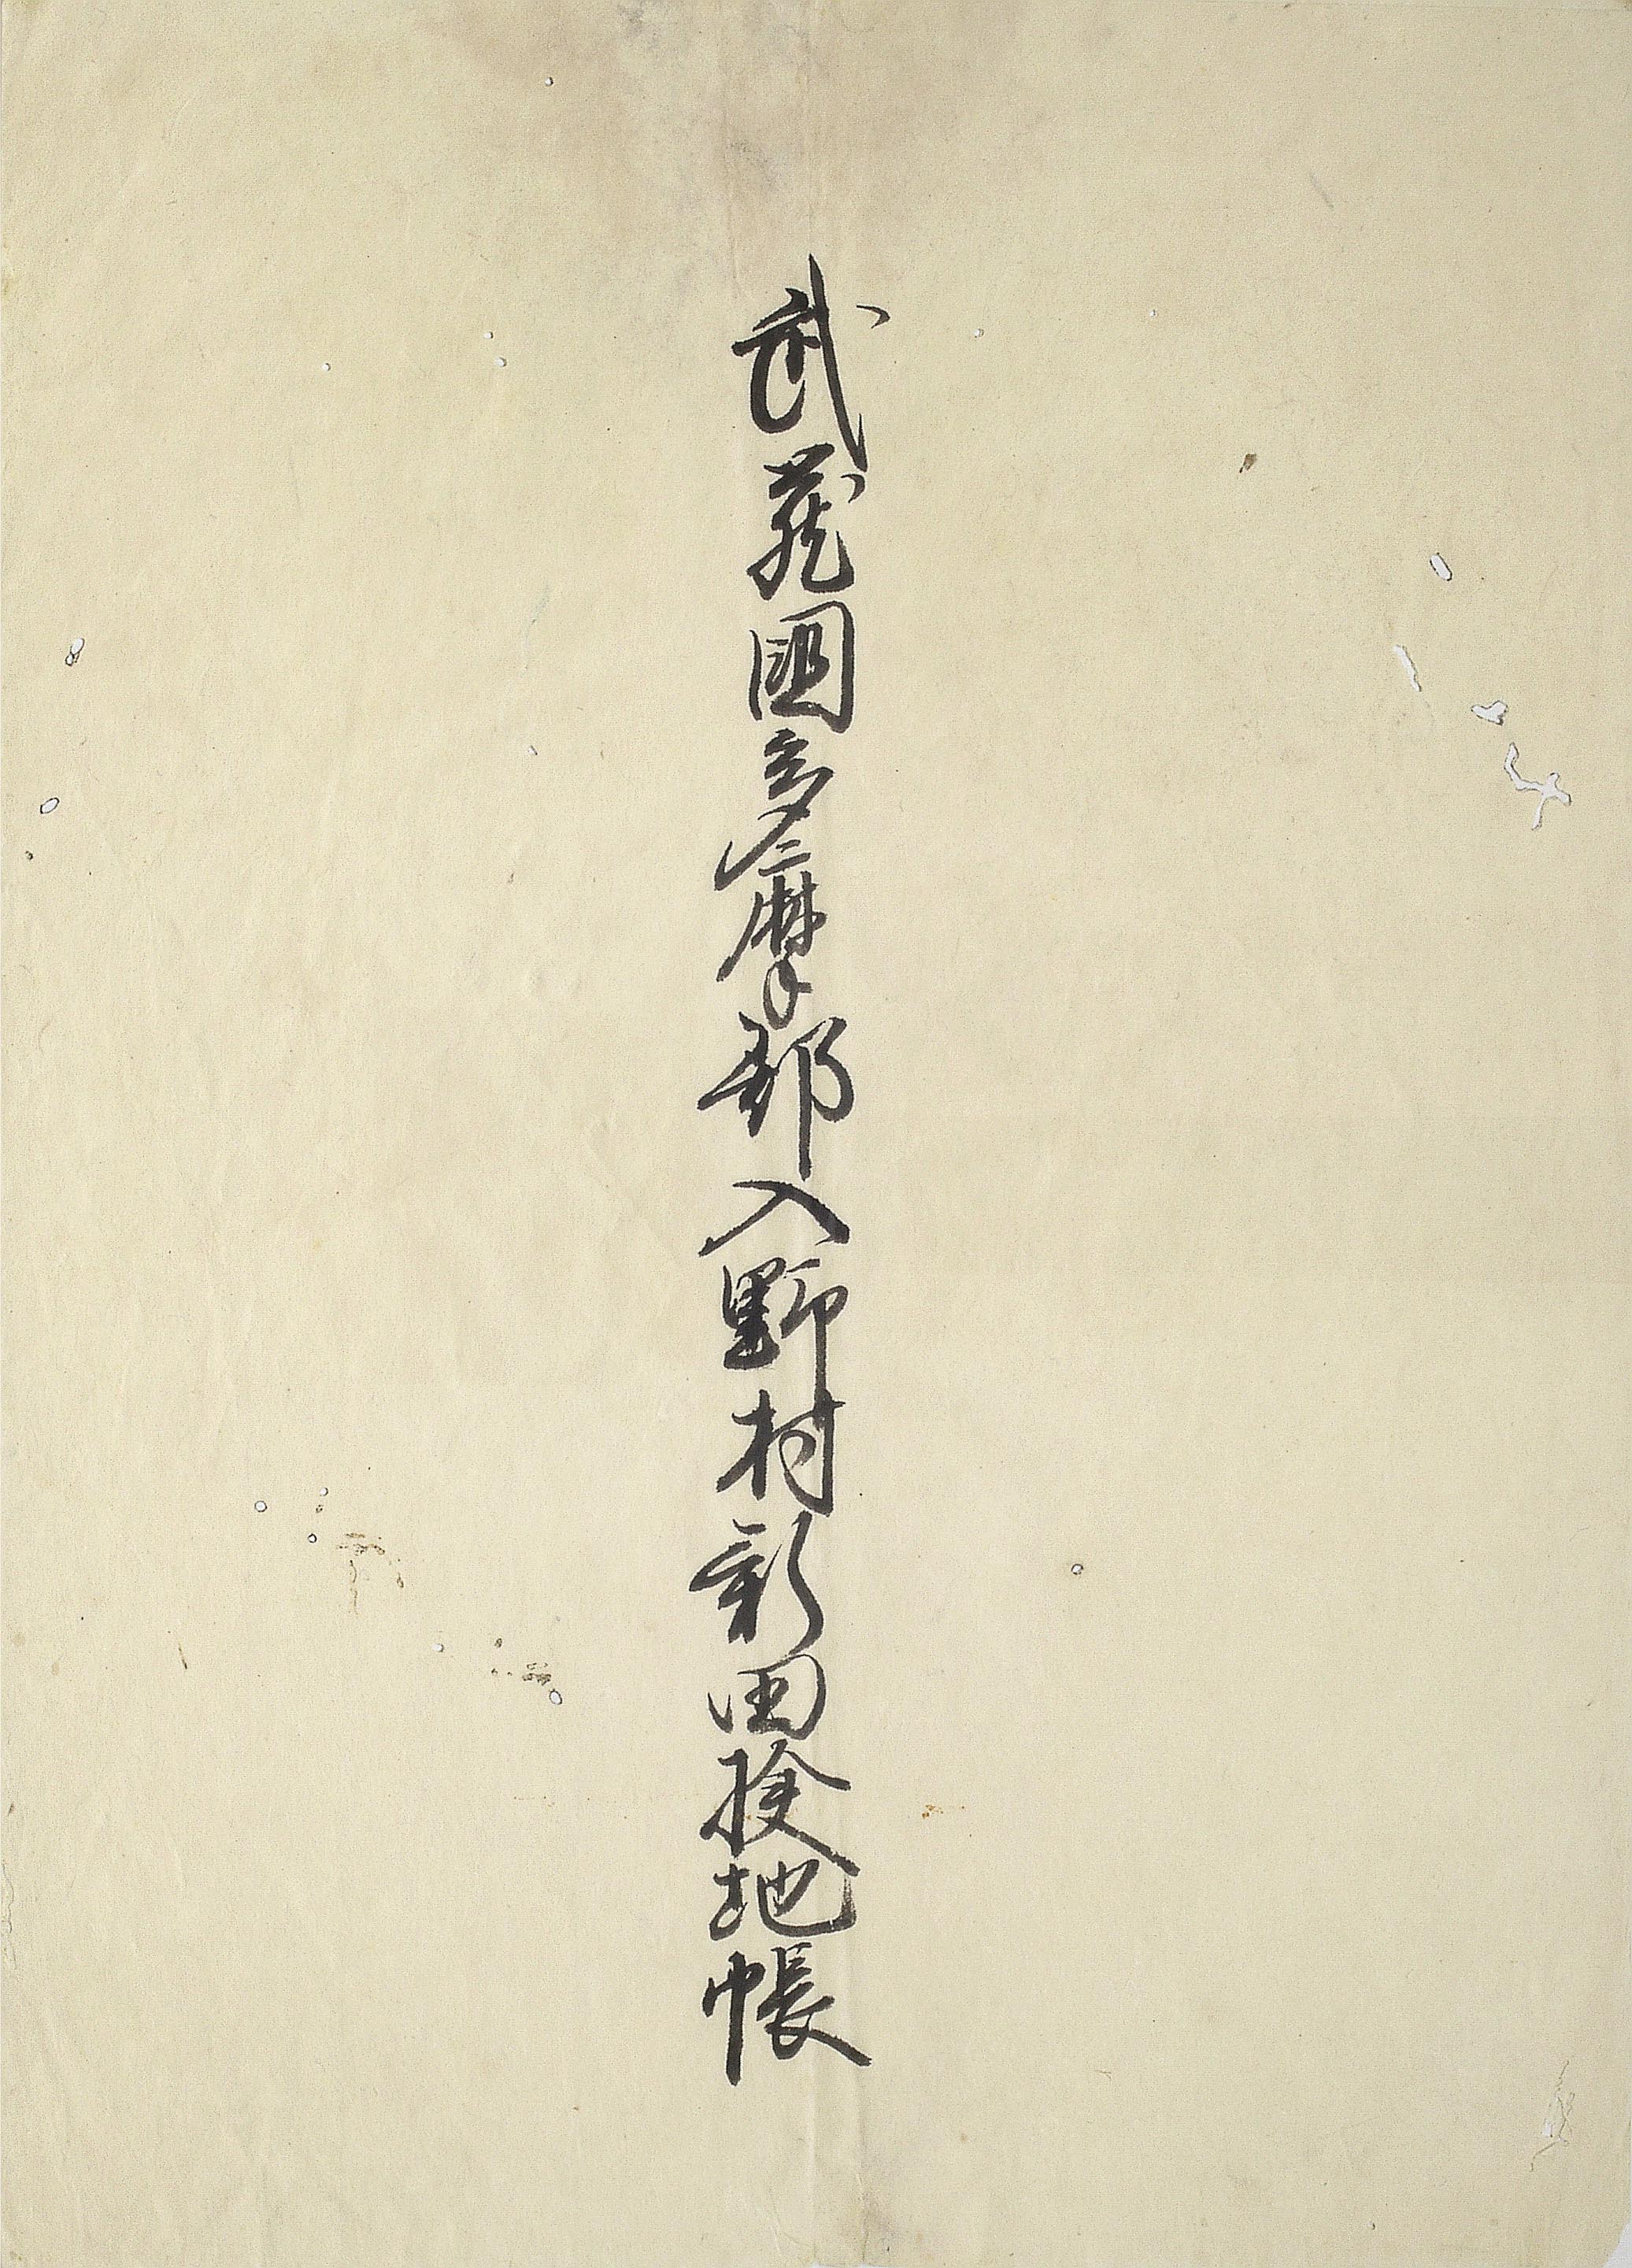 武蔵國多摩郡入野村新田検地帳